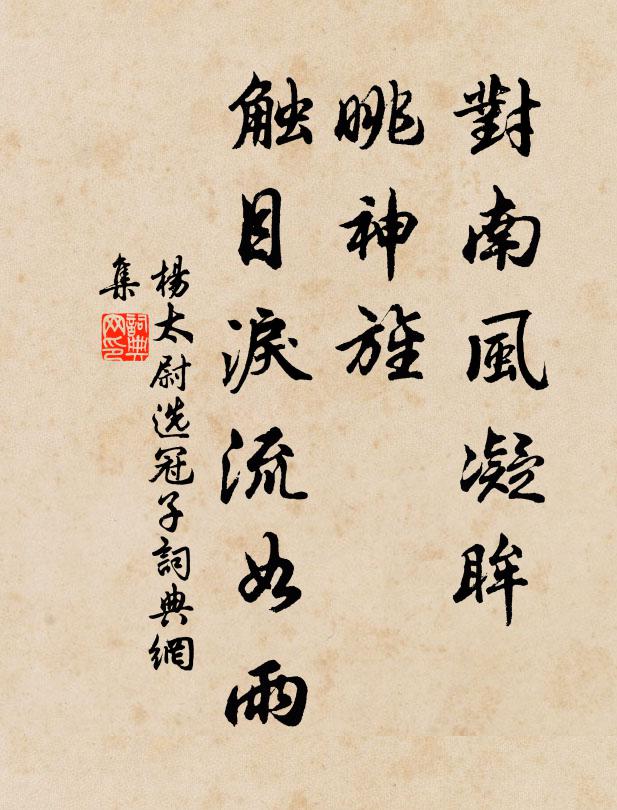 對南風凝眸
眺神旌
觸目淚流如雨
楊太尉选冠子詞典網
集
詞典
网印